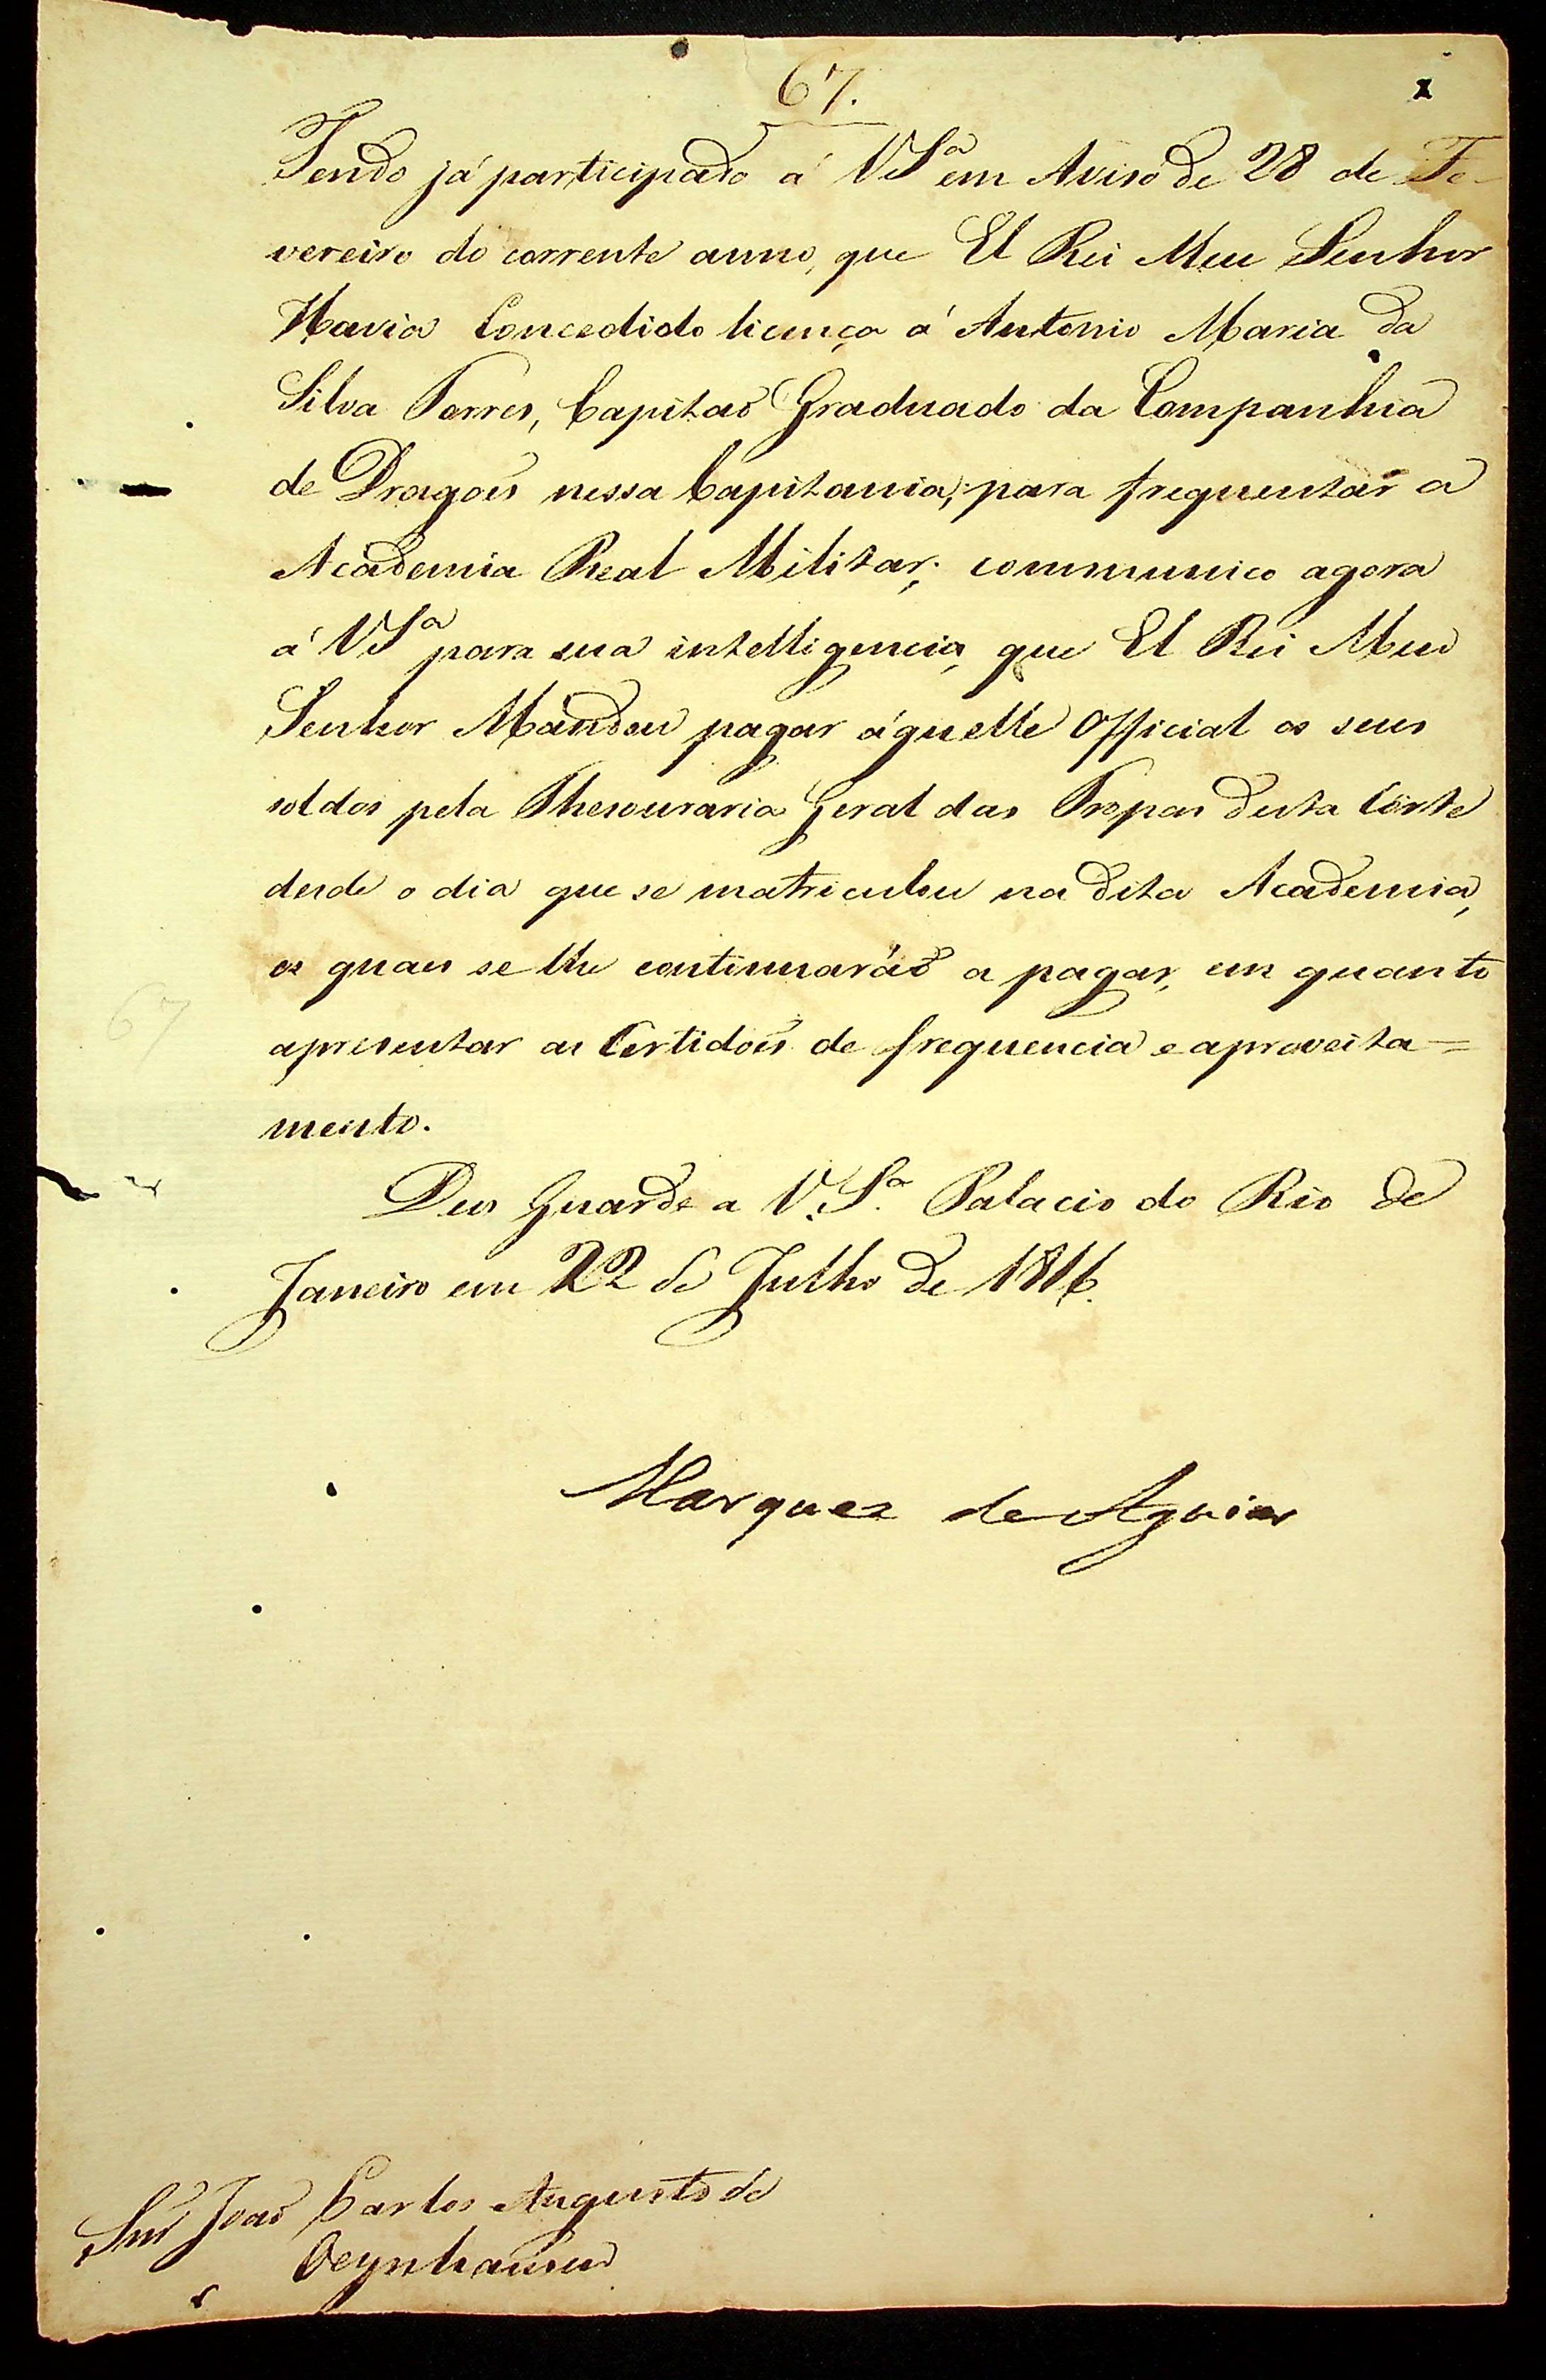 67.
1
Tendo já participado á V S.ª em Aviso de 28 de Fe-
vereiro do corrente anno, que El Rei Meu Senhor
Havia Concedido licença á Antonio Maria da
Silva Torres, Capitaõ Graduado da Companhia
de Dragoẽs nessa Capitania, para frequentar a
Academia Real Militar; communico agora
á V S.ª para sua intelligencia, que El Rei Meu
Senhor Mandou pagar áquelle Official os seus
soldos pela Thesouraria Geral das Tropas desta Côrte
desde o dia que se matriculou na dita Academia,
os quaes se lhe continuaráõ a pagar, em quanto
apresentar as Certidoẽs de frequencia e aproveita=
mento.
67
Deos Guarde a V. S.ª Palacio do Rio de
Janeiro em 22 de Julho de 1816.
Marquez de Aguiar
Snr João Carlos Augusto de
Oeynhausen